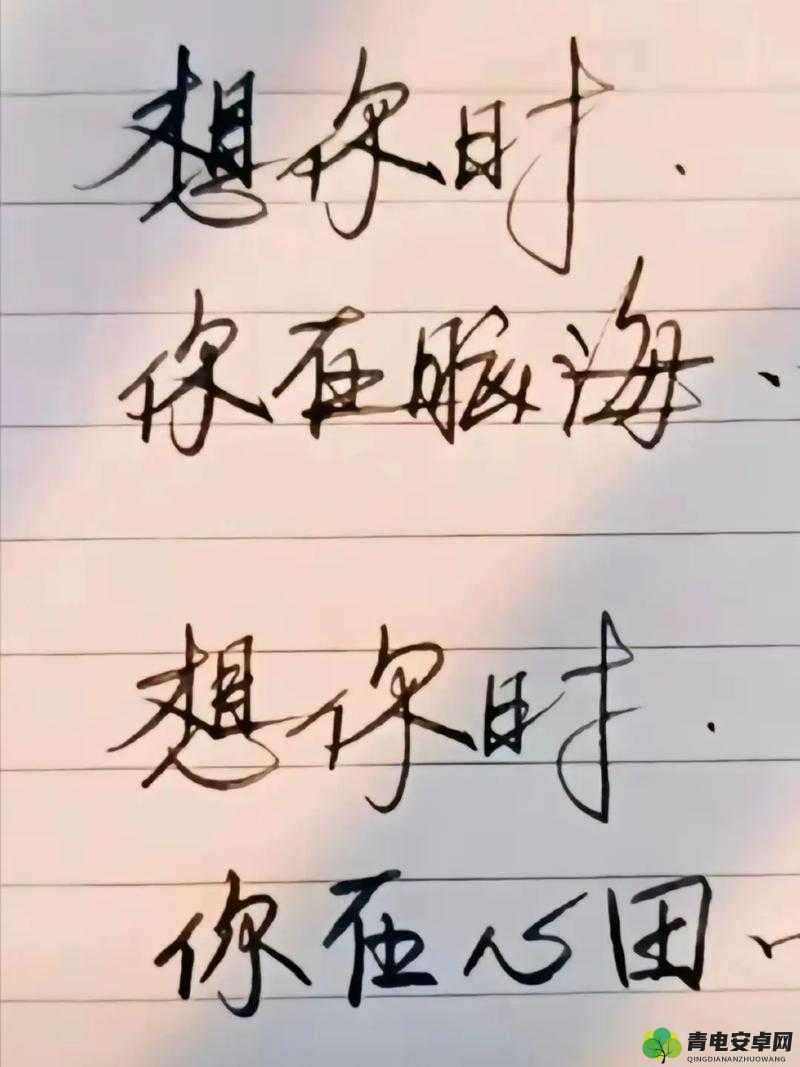 想你时.
你在脑海.
想你时.
你在心田.
青电安卓网
QINGDIANANZHUOWANG